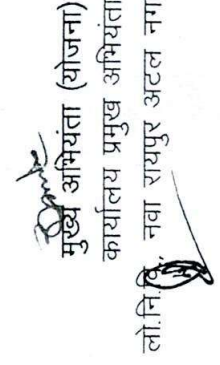 मुख्य अभियंता (योजना)
कार्यालय प्रमुख अभियंता
लो.नि.वि. नवा रायपुर अटल नग